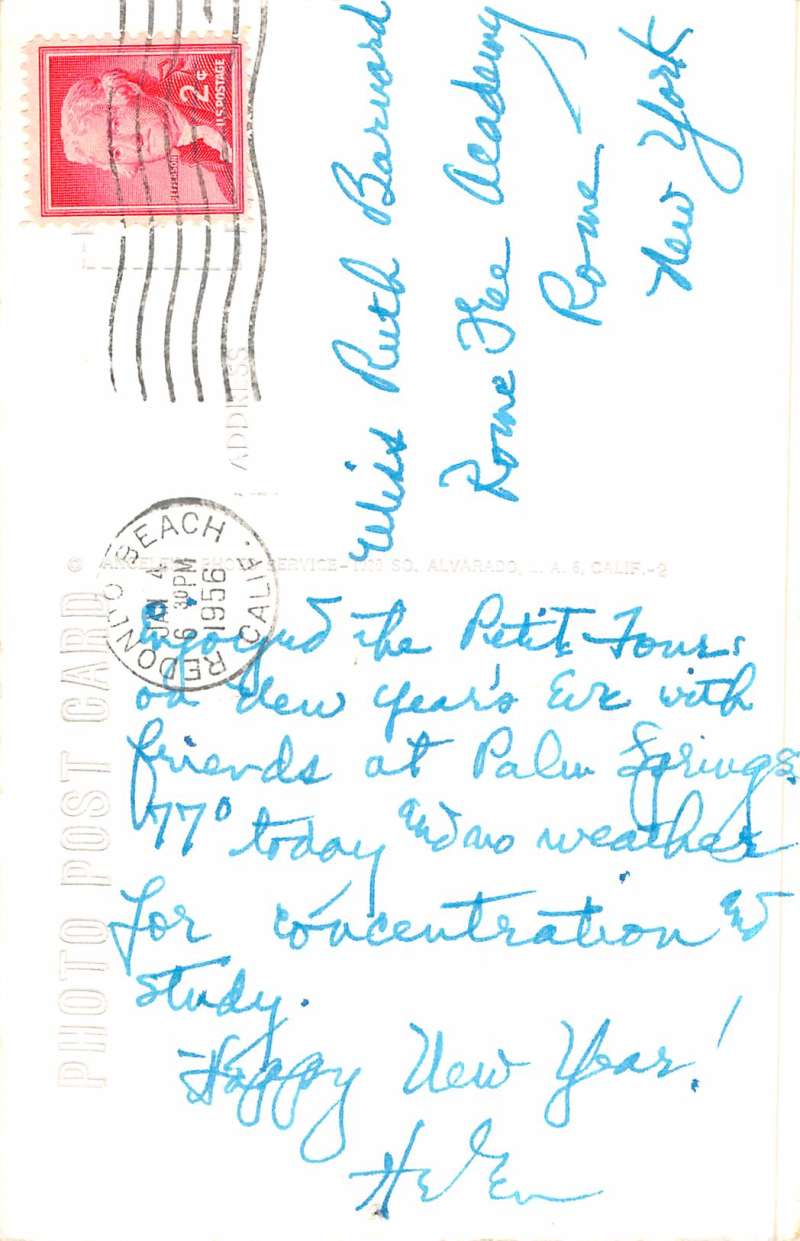 2¢
U.S. POSTAGE
JEFFERSON
ADDRESS
REDONDO BEACH CALIF.
JAN 4
6 30 PM
1956
Miss Ruth Barnard
Rome Free Academy
Rome
New York
PHOTO POST CARD
© ANGELENO PHOTO SERVICE-1220 SO. ALVARADO, L. A. 6, CALIF.-2
Enjoyed the Petit Fours
on New Year's Eve with
friends at Palm Springs.
77° today and no weather
for concentration and
study.
Happy New Year!
Helen